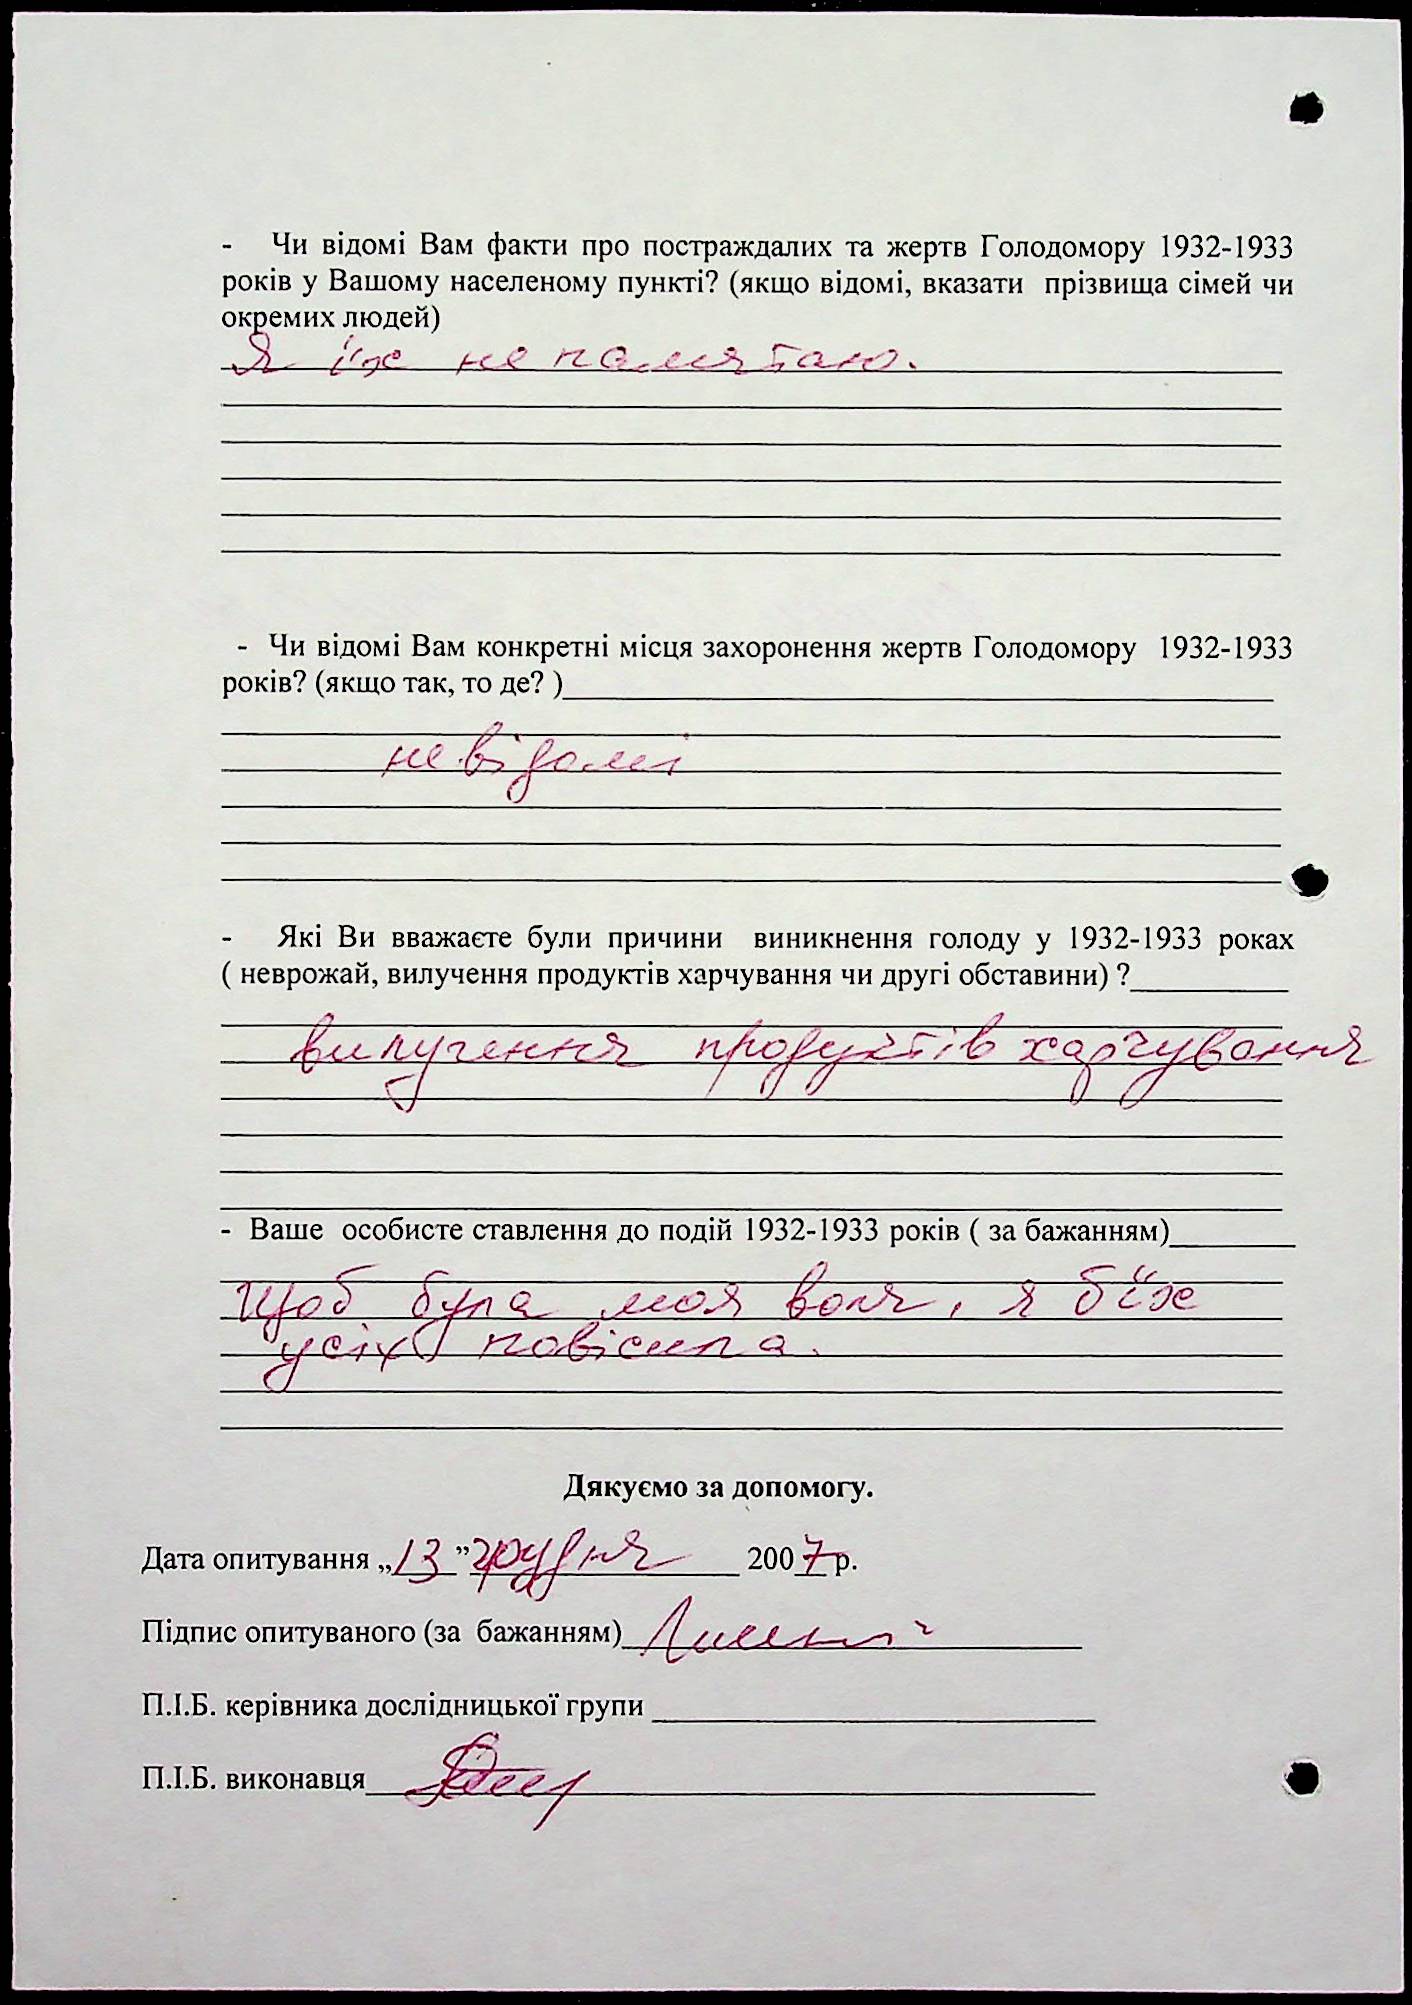 - Чи відомі Вам факти про постраждалих та жертв Голодомору 1932-1933
років у Вашому населеному пункті? (якщо відомі, вказати прізвища сімей чи
окремих людей)
Я їх не памятаю.
- Чи відомі Вам конкретні місця захоронення жертв Голодомору 1932-1933
років? (якщо так, то де? )
не відомі
- Які Ви вважаєте були причини виникнення голоду у 1932-1933 роках
( неврожай, вилучення продуктів харчування чи другі обставини) ?
вилучення продуктів харчування
- Ваше особисте ставлення до подій 1932-1933 років ( за бажанням)
Щоб була моя воля, я б їх
усіх повісила.
Дякуємо за допомогу.
Дата опитування „13” грудня 2007 р.
Підпис опитуваного (за бажанням)
П.І.Б. керівника дослідницької групи
П.І.Б. виконавця